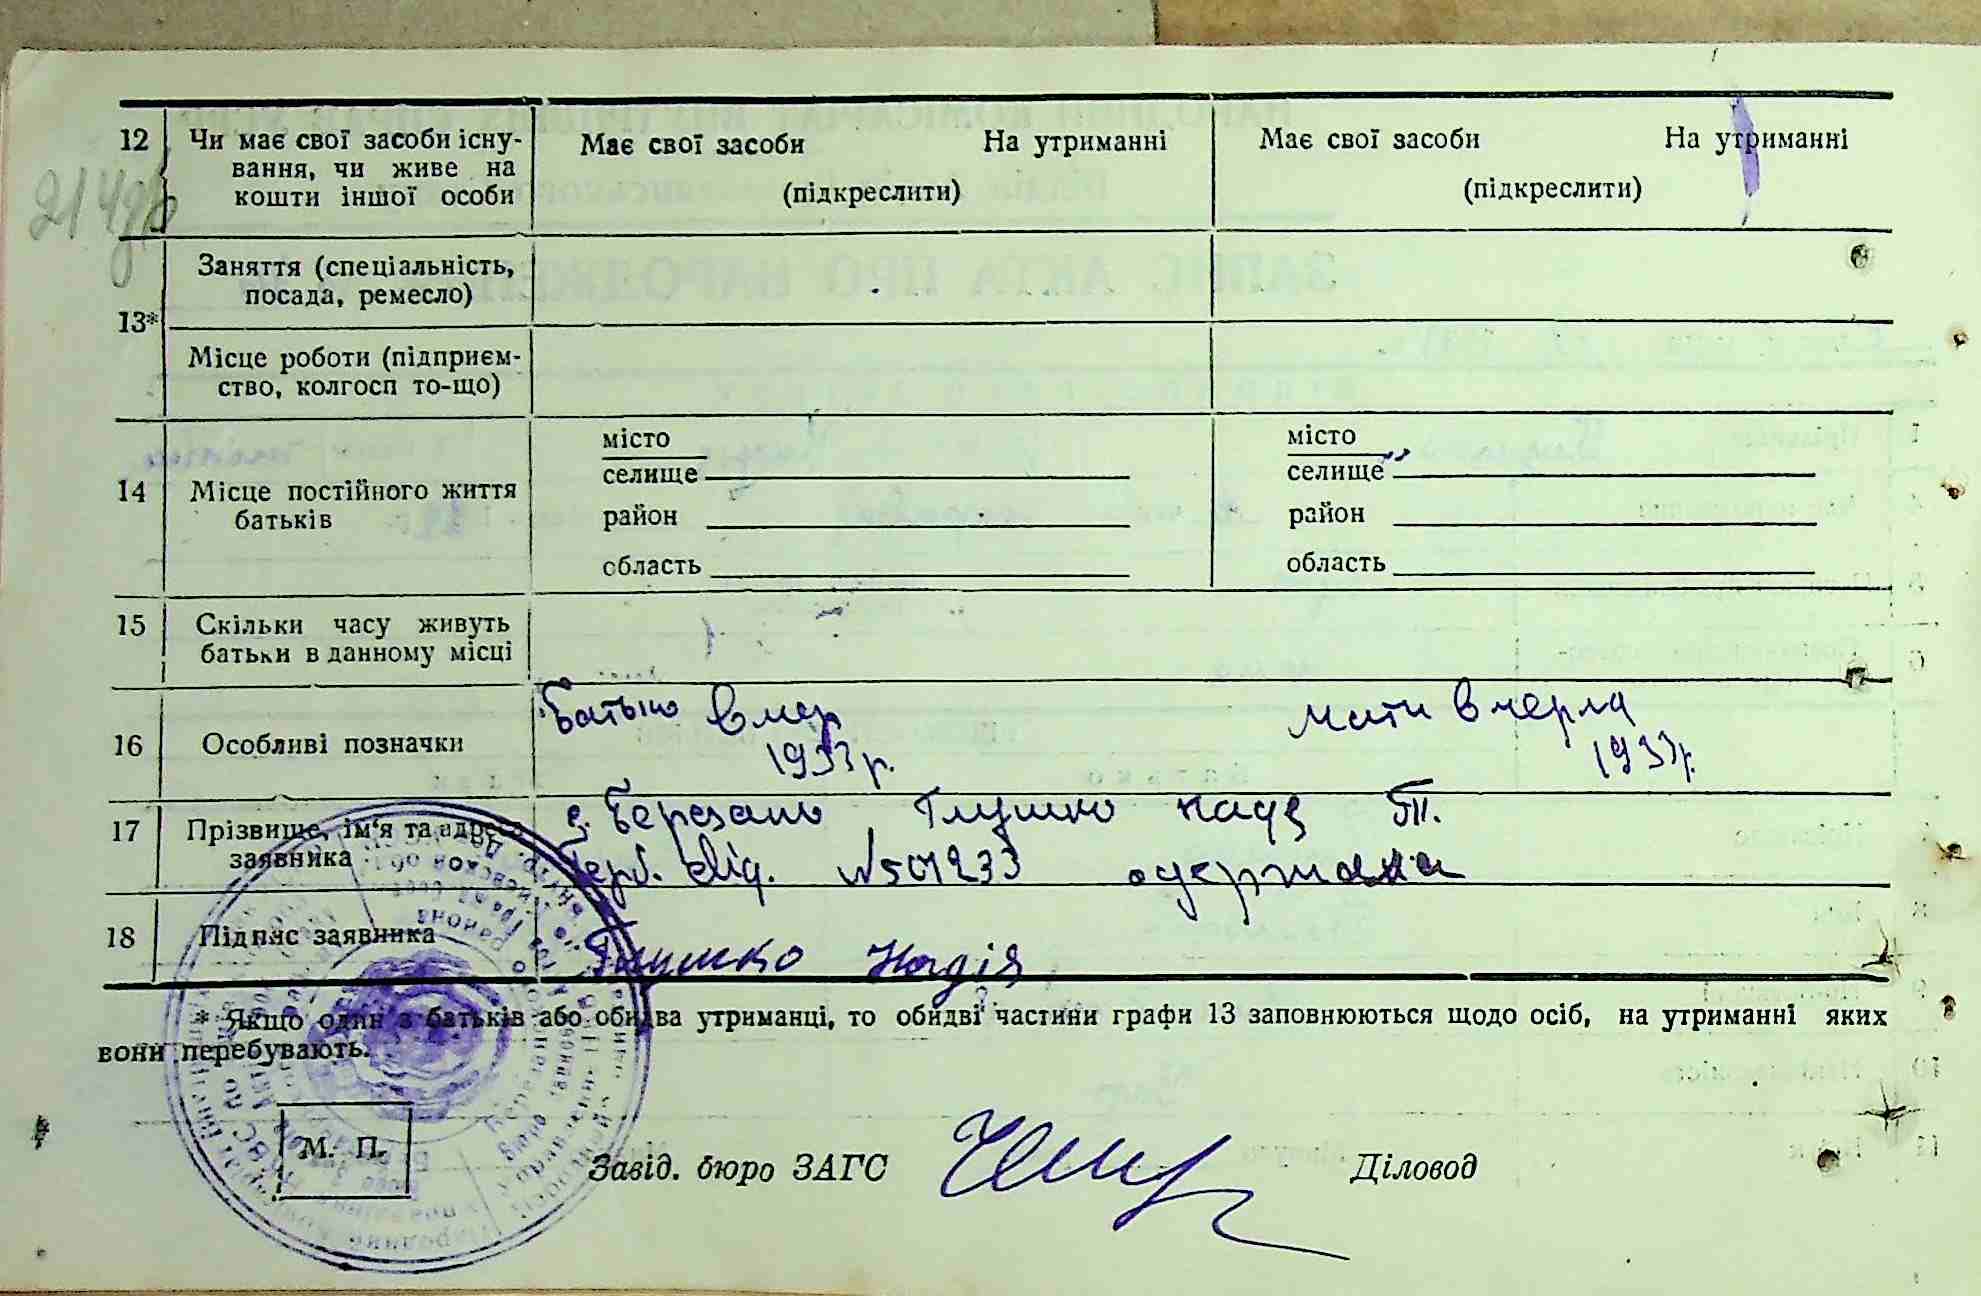 12 Чи має свої засоби існу- Має свої засоби На утриманні Має свої засоби На утриманні
вання, чи живе на (підкреслити) (підкреслити)
кошти іншої особи
Заняття (спеціальність,
посада, ремесло)
13*
Місце роботи (підприєм-
ство, колгосп то-що)
місто місто
селище селище
14 Місце постійного життя район район
батьків
область область
15 Скільки часу живуть
батьки в данному місці
Батько вмер Мати вмерла
16 Особливі позначки 1933 р. 1933 р.
17 Прізвище, ім'я та адреса с. Березань Глушко Надя
заявника Герб. свід. № 501233 одержала
18 Підпис заявника Глушко Надія
* Якщо один з батьків або обидва утриманці, то обидві частини графи 13 заповнюються щодо осіб, на утриманні яких
вони перебувають.
М. П. Завід. бюро ЗАГС Діловод